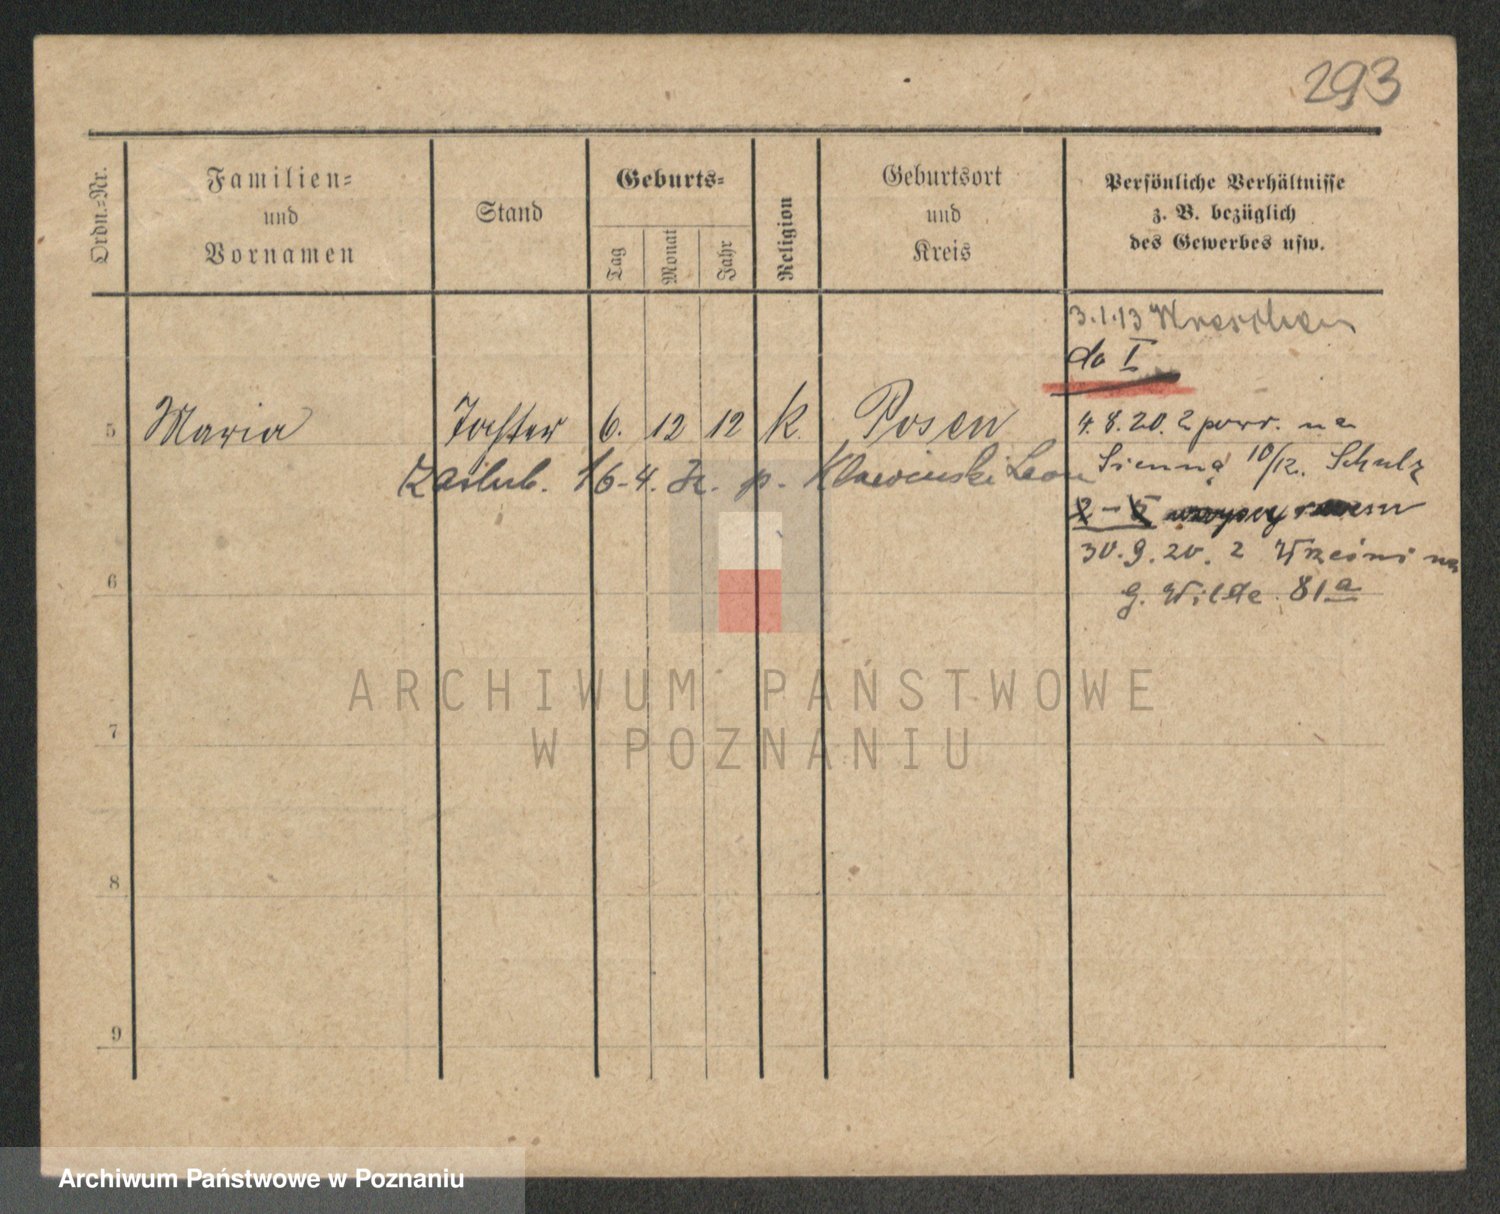 293
Ordn.=Nr.
Familien=
und
Vornamen
Stand
Geburts=
Tag
Monat
Jahr
Religion
Geburtsort
und
Kreis
Persönliche Verhältnisse
z. B. bezüglich
des Gewerbes usw.
3.1.13 Wreschen
do I
5 Maria Tochter 6. 12 12 k. Posen
4.8.20. z pow. na
Zaślub. 16-4. p. Leon
Sienną 10/12. Schulz
30.9.20. z Wrześni na
G. Wilde 81a
6
7
8
9
ARCHIWUM PAŃSTWOWE
W POZNANIU
Archiwum Państwowe w Poznaniu